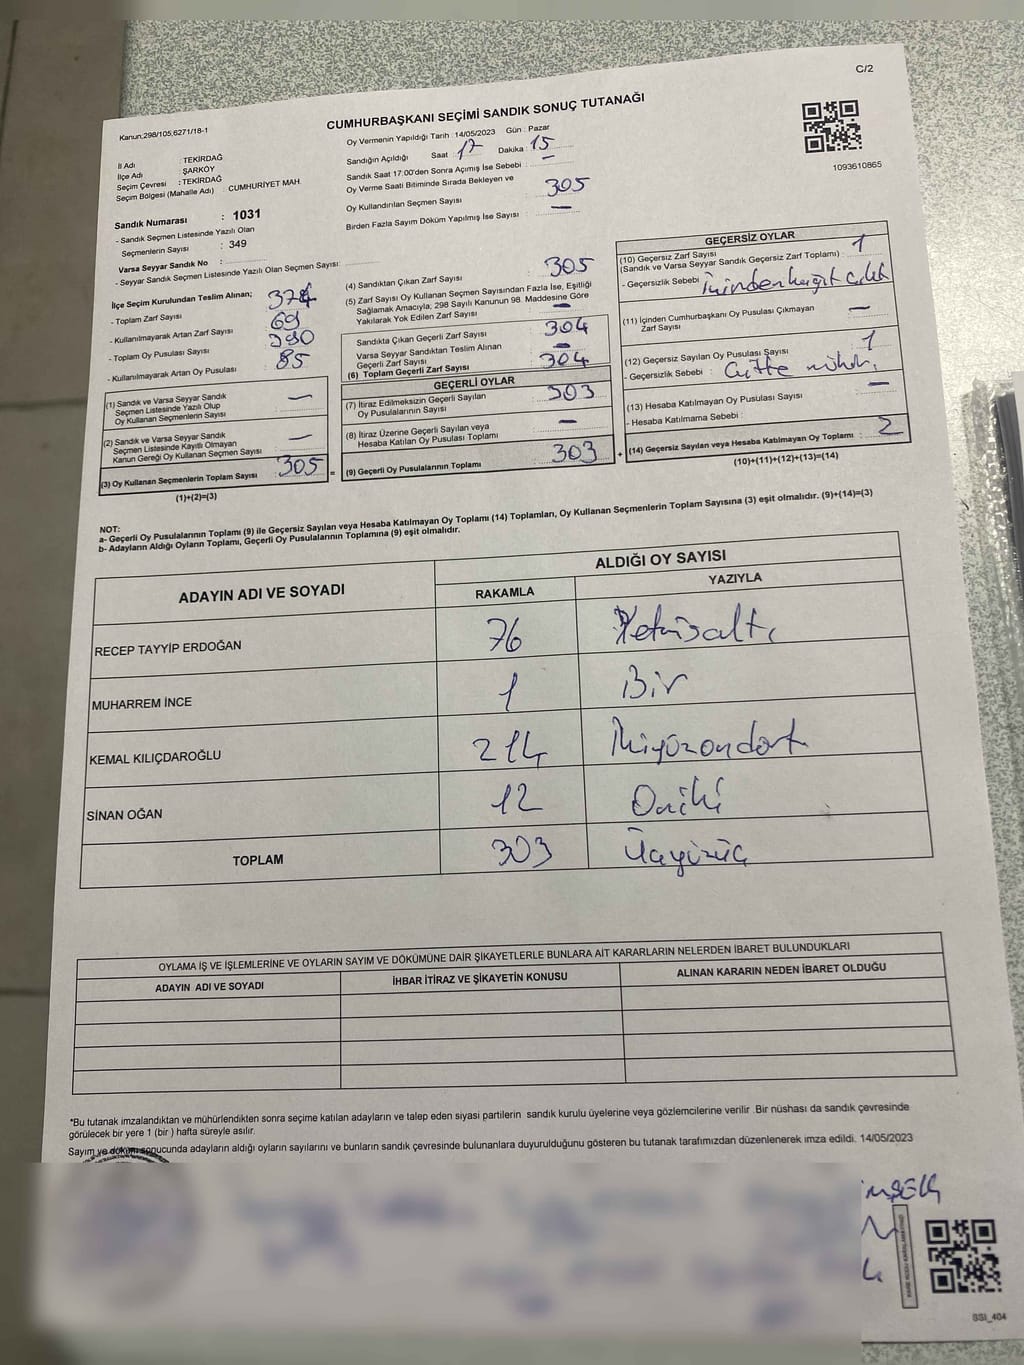 C/2
Kanun;298/105,6271/18-1
CUMHURBAŞKANI SEÇİMİ SANDIK SONUÇ TUTANAĞI
1093610865
İl Adı : TEKİRDAĞ
İlçe Adı : ŞARKÖY
Seçim Çevresi : TEKİRDAĞ
Seçim Bölgesi (Mahalle Adı) : CUMHURİYET MAH.
Sandık Numarası : 1031
- Sandık Seçmen Listesinde Yazılı Olan
Seçmenlerin Sayısı : 349
Varsa Seyyar Sandık No :
- Seyyar Sandık Seçmen Listesinde Yazılı Olan Seçmen Sayısı:
Oy Vermenin Yapıldığı Tarih : 14/05/2023 Gün : Pazar
Sandığın Açıldığı Saat : 17 Dakika : 15
Sandık Saat 17:00'den Sonra Açımış İse Sebebi : –
Oy Verme Saati Bitiminde Sırada Bekleyen ve
Oy Kullandırılan Seçmen Sayısı : 305
Birden Fazla Sayım Döküm Yapılmış İse Sayısı : –
İlçe Seçim Kurulundan Teslim Alınan;
- Toplam Zarf Sayısı : 374
- Kullanılmayarak Artan Zarf Sayısı : 69
- Toplam Oy Pusulası Sayısı : 390
- Kullanılmayarak Artan Oy Pusulası : 85
(1) Sandık ve Varsa Seyyar Sandık
Seçmen Listesinde Yazılı Olup
Oy Kullanan Seçmenlerin Sayısı : –
(2) Sandık ve Varsa Seyyar Sandık
Seçmen Listesinde Kayıtlı Olmayan
Kanun Gereği Oy Kullanan Seçmen Sayısı : –
(3) Oy Kullanan Seçmenlerin Toplam Sayısı : 305 =
(1)+(2)=(3)
(4) Sandıktan Çıkan Zarf Sayısı : 305
(5) Zarf Sayısı Oy Kullanan Seçmen Sayısından Fazla İse, Eşitliği
Sağlamak Amacıyla; 298 Sayılı Kanunun 98. Maddesine Göre
Yakılarak Yok Edilen Zarf Sayısı : –
Sandıkta Çıkan Geçerli Zarf Sayısı : 304
Varsa Seyyar Sandıktan Teslim Alınan
Geçerli Zarf Sayısı : –
(6) Toplam Geçerli Zarf Sayısı : 304
GEÇERLİ OYLAR
(7) İtiraz Edilmeksizin Geçerli Sayılan
Oy Pusulalarının Sayısı : 303
(8) İtiraz Üzerine Geçerli Sayılan veya
Hesaba Katılan Oy Pusulası Toplamı : –
(9) Geçerli Oy Pusulalarının Toplamı : 303 +
GEÇERSİZ OYLAR
(10) Geçersiz Zarf Sayısı : 1
(Sandık ve Varsa Seyyar Sandık Geçersiz Zarf Toplamı)
- Geçersizlik Sebebi : İçinden kağıt çıktı
(11) İçinden Cumhurbaşkanı Oy Pusulası Çıkmayan
Zarf Sayısı : –
(12) Geçersiz Sayılan Oy Pusulası Sayısı : 1
- Geçersizlik Sebebi : Çifte mühür
(13) Hesaba Katılmayan Oy Pusulası Sayısı : –
- Hesaba Katılmama Sebebi :
(14) Geçersiz Sayılan veya Hesaba Katılmayan Oy Toplamı : 2
(10)+(11)+(12)+(13)=(14)
NOT:
a- Geçerli Oy Pusulalarının Toplamı (9) ile Geçersiz Sayılan veya Hesaba Katılmayan Oy Toplamı (14) Toplamları, Oy Kullanan Seçmenlerin Toplam Sayısına (3) eşit olmalıdır. (9)+(14)=(3)
b- Adayların Aldığı Oyların Toplamı, Geçerli Oy Pusulalarının Toplamına (9) eşit olmalıdır.
ADAYIN ADI VE SOYADI
ALDIĞI OY SAYISI
RAKAMLA YAZIYLA
RECEP TAYYİP ERDOĞAN 76 Yetmişaltı
MUHARREM İNCE 1 Bir
KEMAL KILIÇDAROĞLU 214 İkiyüzondört
SİNAN OĞAN 12 Oniki
TOPLAM 303 Üçyüzüç
OYLAMA İŞ VE İŞLEMLERİNE VE OYLARIN SAYIM VE DÖKÜMÜNE DAİR ŞİKAYETLERLE BUNLARA AİT KARARLARIN NELERDEN İBARET BULUNDUKLARI
ADAYIN ADI VE SOYADI İHBAR İTİRAZ VE ŞİKAYETİN KONUSU ALINAN KARARIN NEDEN İBARET OLDUĞU
*Bu tutanak imzalandıktan ve mühürlendikten sonra seçime katılan adayların ve talep eden siyasi partilerin sandık kurulu üyelerine veya gözlemcilerine verilir .Bir nüshası da sandık çevresinde
görülecek bir yere 1 (bir ) hafta süreyle asılır.
Sayım ve döküm sonucunda adayların aldığı oyların sayılarını ve bunların sandık çevresinde bulunanlara duyurulduğunu gösteren bu tutanak tarafımızdan düzenlenerek imza edildi. 14/05/2023
SSI_404